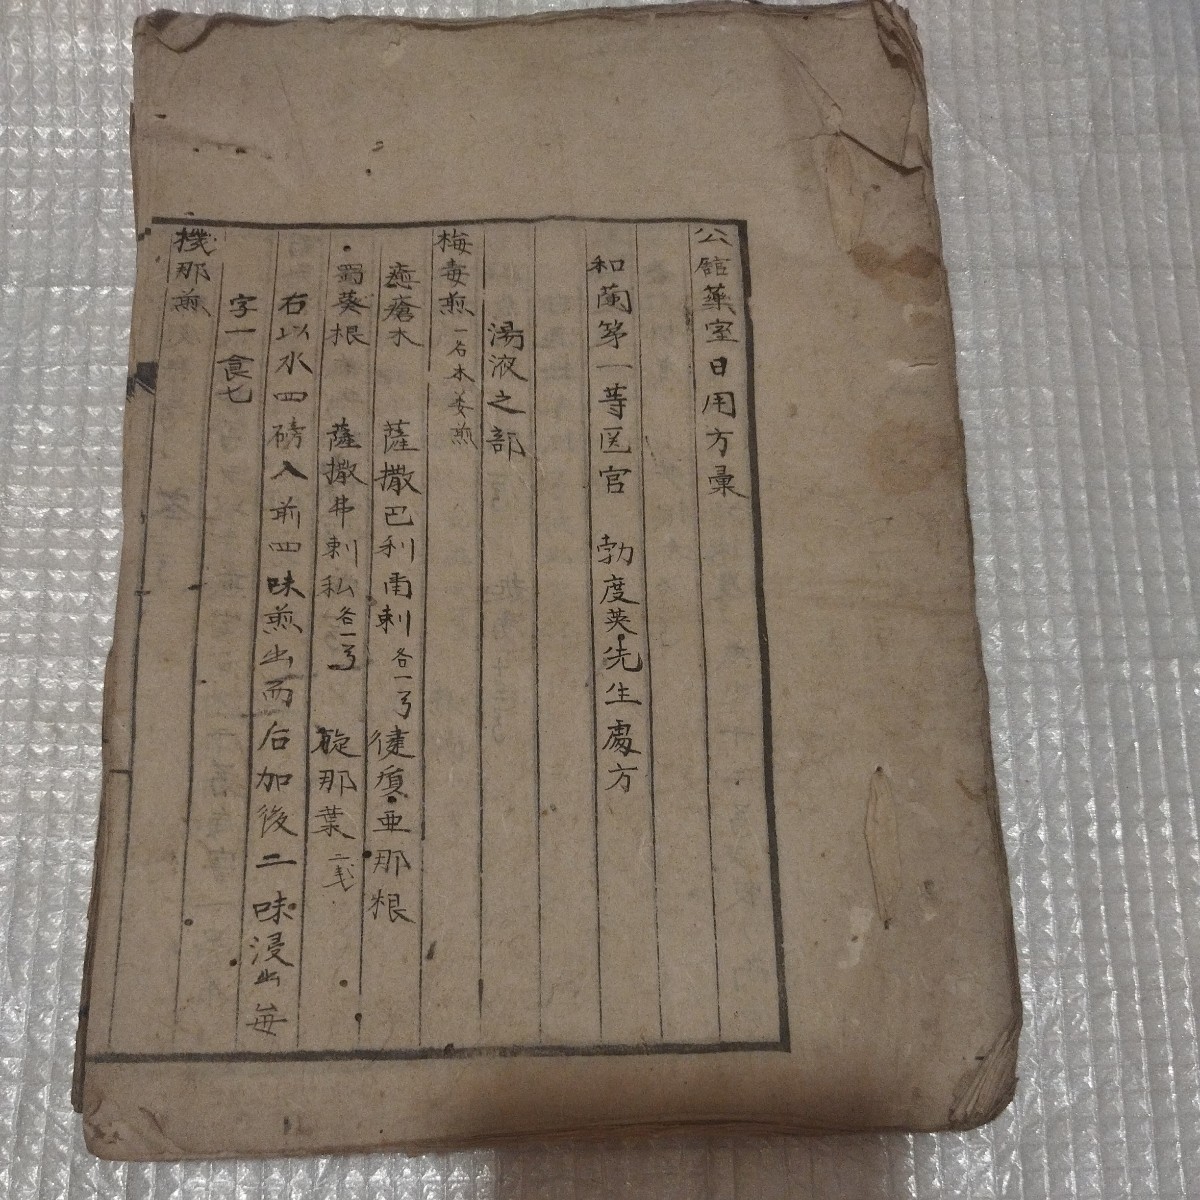 公館薬室日用方彙
和蘭第一等医官 勃度英先生處方
湯液之部
梅毒煎 一名木姜煎
癒瘡木 薩撒巴利雨剌 各一弓 健質亜那根
蜀葵根 薩撒弗剌私 各一弓 旋那葉 二戋
右以水四磅入前四味煎出而后加後二味浸出毎
字一食七
機那煎